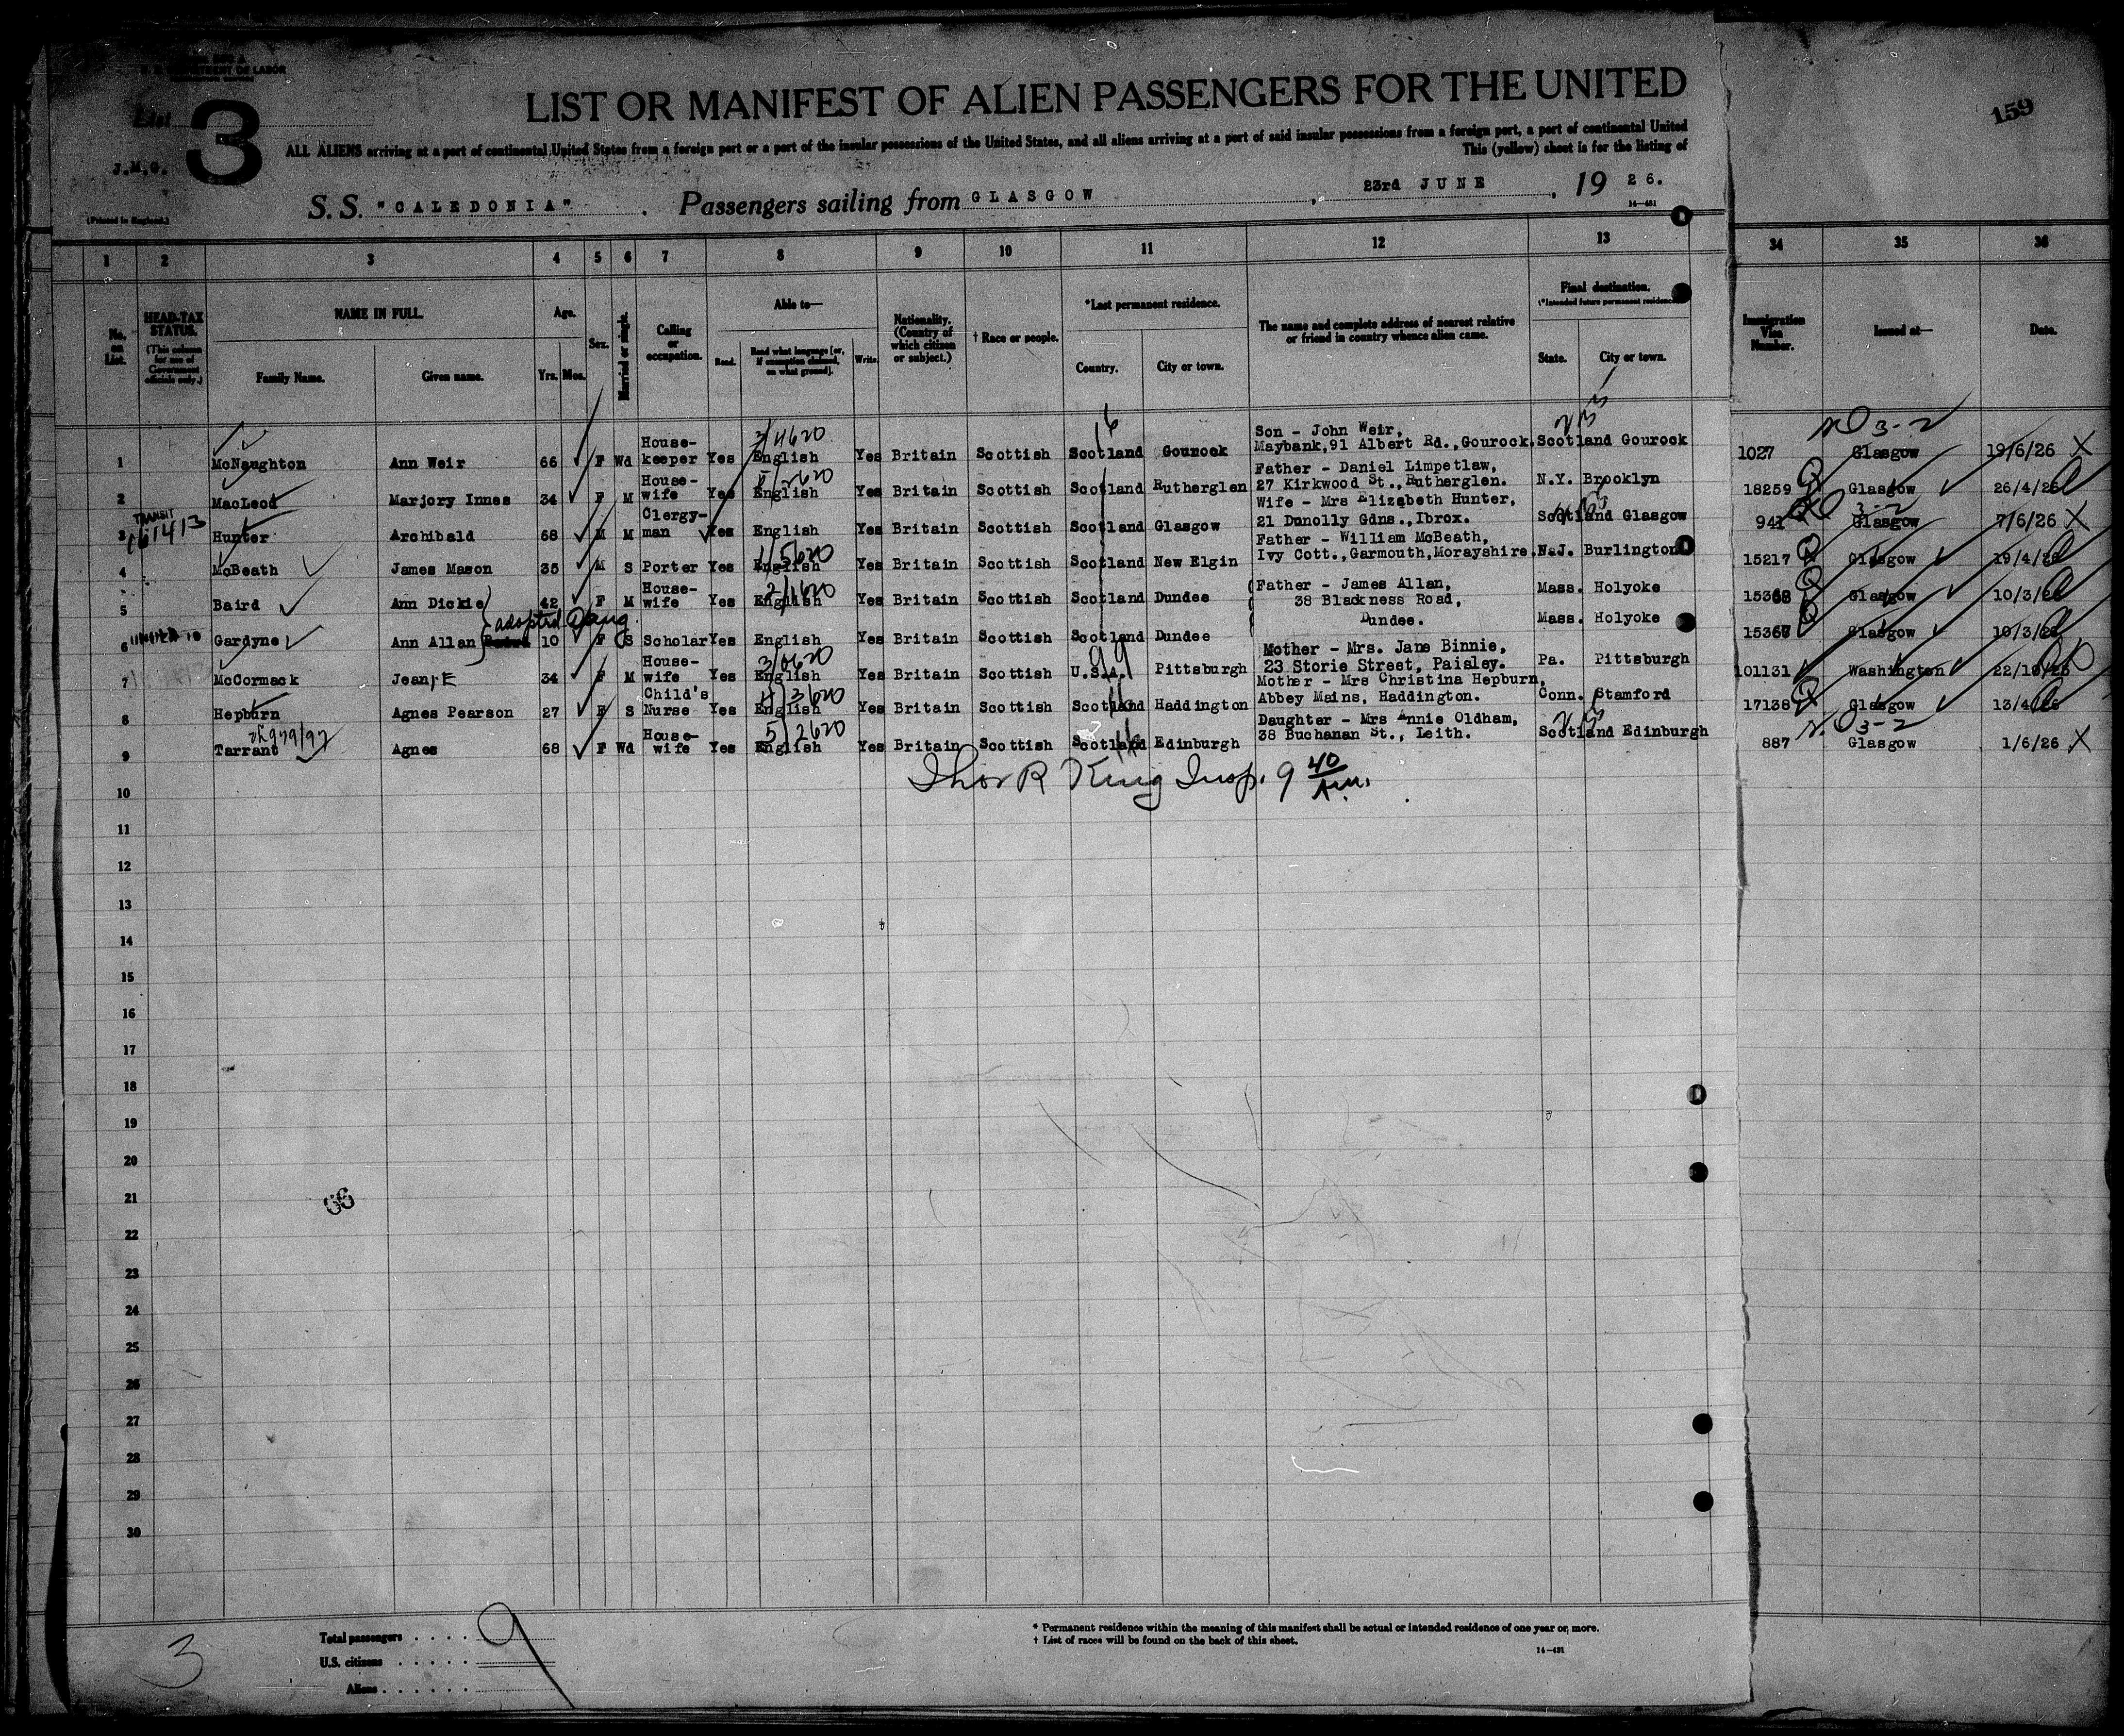 U. S. DEPARTMENT OF LABOR
List 3
159
J.M.G.
(Printed in England.)
LIST OR MANIFEST OF ALIEN PASSENGERS FOR THE UNITED
ALL ALIENS arriving at a port of continental United States from a foreign port or a port of the insular possessions of the United States, and all aliens arriving at a port of said insular possessions from a foreign port, a port of continental United
This (yellow) sheet is for the listing of
S. S. "CALEDONIA" . Passengers sailing from GLASGOW , 23rd JUNE , 19 26.
14—431
1 2 3 4 5 6 7 8 9 10 11 12 13 34 35 36
No. on List.
HEAD-TAX STATUS. (This column for use of Government officials only.)
NAME IN FULL.
Family Name. Given name.
Age.
Yrs. Mos.
Sex.
Married or single.
Calling or occupation.
Able to—
Read. Read what language [or, if exemption claimed, on what ground]. Write.
Nationality. (Country of which citizen or subject.)
† Race or people.
*Last permanent residence.
Country. City or town.
The name and complete address of nearest relative or friend in country whence alien came.
Final destination.
(*Intended future permanent residence.)
State. City or town.
Immigration Visa Number.
Issued at—
Date.
3/4620 16 NO 3-2
1 McNaughton Ann Weir 66 F Wd House-keeper Yes English Yes Britain Scottish Scotland Gourock Son - John Weir, Maybank,91 Albert Rd.,Gourock. Scotland Gourock 1027 Glasgow 19/6/26 X
5/2620
2 MacLeod Marjory Innes 34 F M House-wife Yes English Yes Britain Scottish Scotland Rutherglen Father - Daniel Limpetlaw, 27 Kirkwood St.,Rutherglen. N.Y. Brooklyn 18259 Glasgow 26/4/26
TRANSIT 161413 3-2
3 Hunter Archibald 68 M M Clergy-man Yes English Yes Britain Scottish Scotland Glasgow Wife - Mrs Elizabeth Hunter, 21 Dunolly Gdns.,Ibrox. Scotland Glasgow 941 Glasgow 7/6/26 X
1/5620
4 McBeath James Mason 35 M S Porter Yes English Yes Britain Scottish Scotland New Elgin Father - William McBeath, Ivy Cott.,Garmouth,Morayshire. N.J. Burlington 15217 Glasgow 19/4/26
2/1620
5 Baird Ann Dickie 42 F M House-wife Yes English Yes Britain Scottish Scotland Dundee Father - James Allan, 38 Blackness Road, Dundee. Mass. Holyoke 15368 Glasgow 10/3/26
adopted Daug.
6 UNDER 16 Gardyne Ann Allan 10 F S Scholar Yes English Yes Britain Scottish Scotland Dundee Mass. Holyoke 15367 Glasgow 10/3/26
3/0620 99
7 McCormack Jean E 34 F M House-wife Yes English Yes Britain Scottish U.S.A. Pittsburgh Mother - Mrs. Jane Binnie, 23 Storie Street, Paisley. Pa. Pittsburgh 101131 Washington 22/10/25
4/3620 16
8 Hepburn Agnes Pearson 27 F S Child's Nurse Yes English Yes Britain Scottish Scotland Haddington Mother - Mrs Christina Hepburn, Abbey Mains, Haddington. Conn. Stamford 17138 Glasgow 13/4/26
5/2620 16 N.O 3-2
9 Tarrant Agnes 68 F Wd House-wife Yes English Yes Britain Scottish Scotland Edinburgh Daughter - Mrs Annie Oldham, 38 Buchanan St., Leith. Scotland Edinburgh 887 Glasgow 1/6/26 X
Thos R King Insp. 9 40 A.M.
10
11
12
13
14
15
16
17
18
19
20
21
22
23
24
25
26
27
28
29
30
66
3
Total passengers . . . . 9
U.S. citizens . . . . .
Aliens . . . . . .
* Permanent residence within the meaning of this manifest shall be actual or intended residence of one year or more.
† List of races will be found on the back of this sheet.
14—431